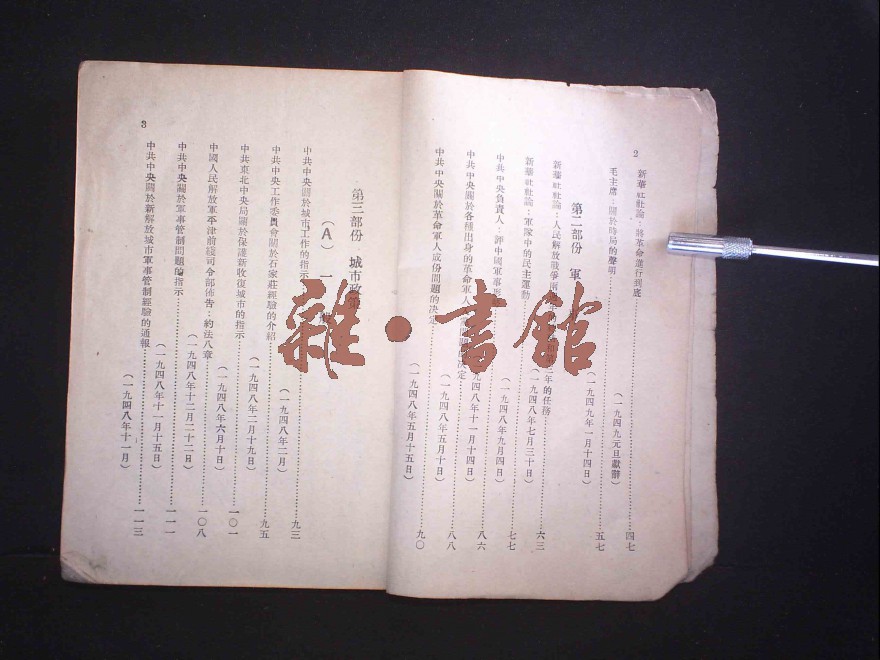 2
新華社社論：將革命進行到底……（一九四九元旦獻辭）……四七
毛主席：關於時局的聲明……（一九四九年一月十四日）……五七
第二部份 軍
新華社社論：人民解放戰爭兩 年的任務……（一九四八年七月三十日）……六三
新華社社論：軍隊中的民主運動……七七
中共中央負責人：評中國軍事 ……（一九四八年九月四日）……八六
中共中央關於各種出身的革命軍人 決定……一九四八年十一月十四日）……八八
中共中央關於革命軍人成份問題的決定……（一九四八年五月十五日）……九〇
3
第三部份 城市政策
（A）一
中共中央關於城市工作的指示……九三
中共中央工作委員會關於石家莊經驗的介紹……（一九四八年二月）……九五
中共東北中央局關於保護新收復城市的指示……（一九四八年二月十九日）……一〇一
中國人民解放軍平津前綫司令部佈告：約法八章……（一九四八年六月十日）……一〇八
中共中央關於軍事管制問題的指示……（一九四八年十二月二十二日）……一一一
中共中央關於新解放城市軍事管制經驗的通報……（一九四八年十一月十五日）……一一三
（一九四八年十一月）
雜·書館